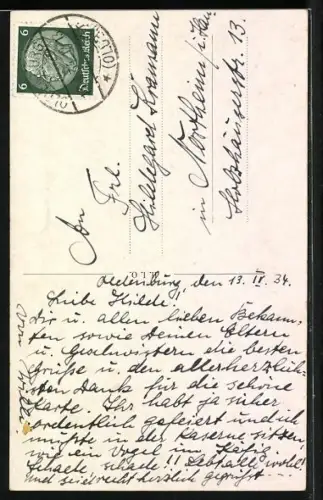 6
6
Deutsches Reich
An Frl.
Hildegard
in Northeim
13.
Oldenburg, den 13. IX. 34.
Liebe Hilde!
Dir u. allen lieben Bekann-
ten sowie Deinen Eltern
u. Geschwistern die besten
Grüße u. den allerherzlich-
sten Dank für die schöne
Karte. Ihr habt ja sicher
ordentlich gefeiert und ich
mußte in der Kaserne sitzen
wie ein Vogel im Käfig.
Schade schade!! Lebt alle wohl!
und seid recht herzlich gegrüßt
von